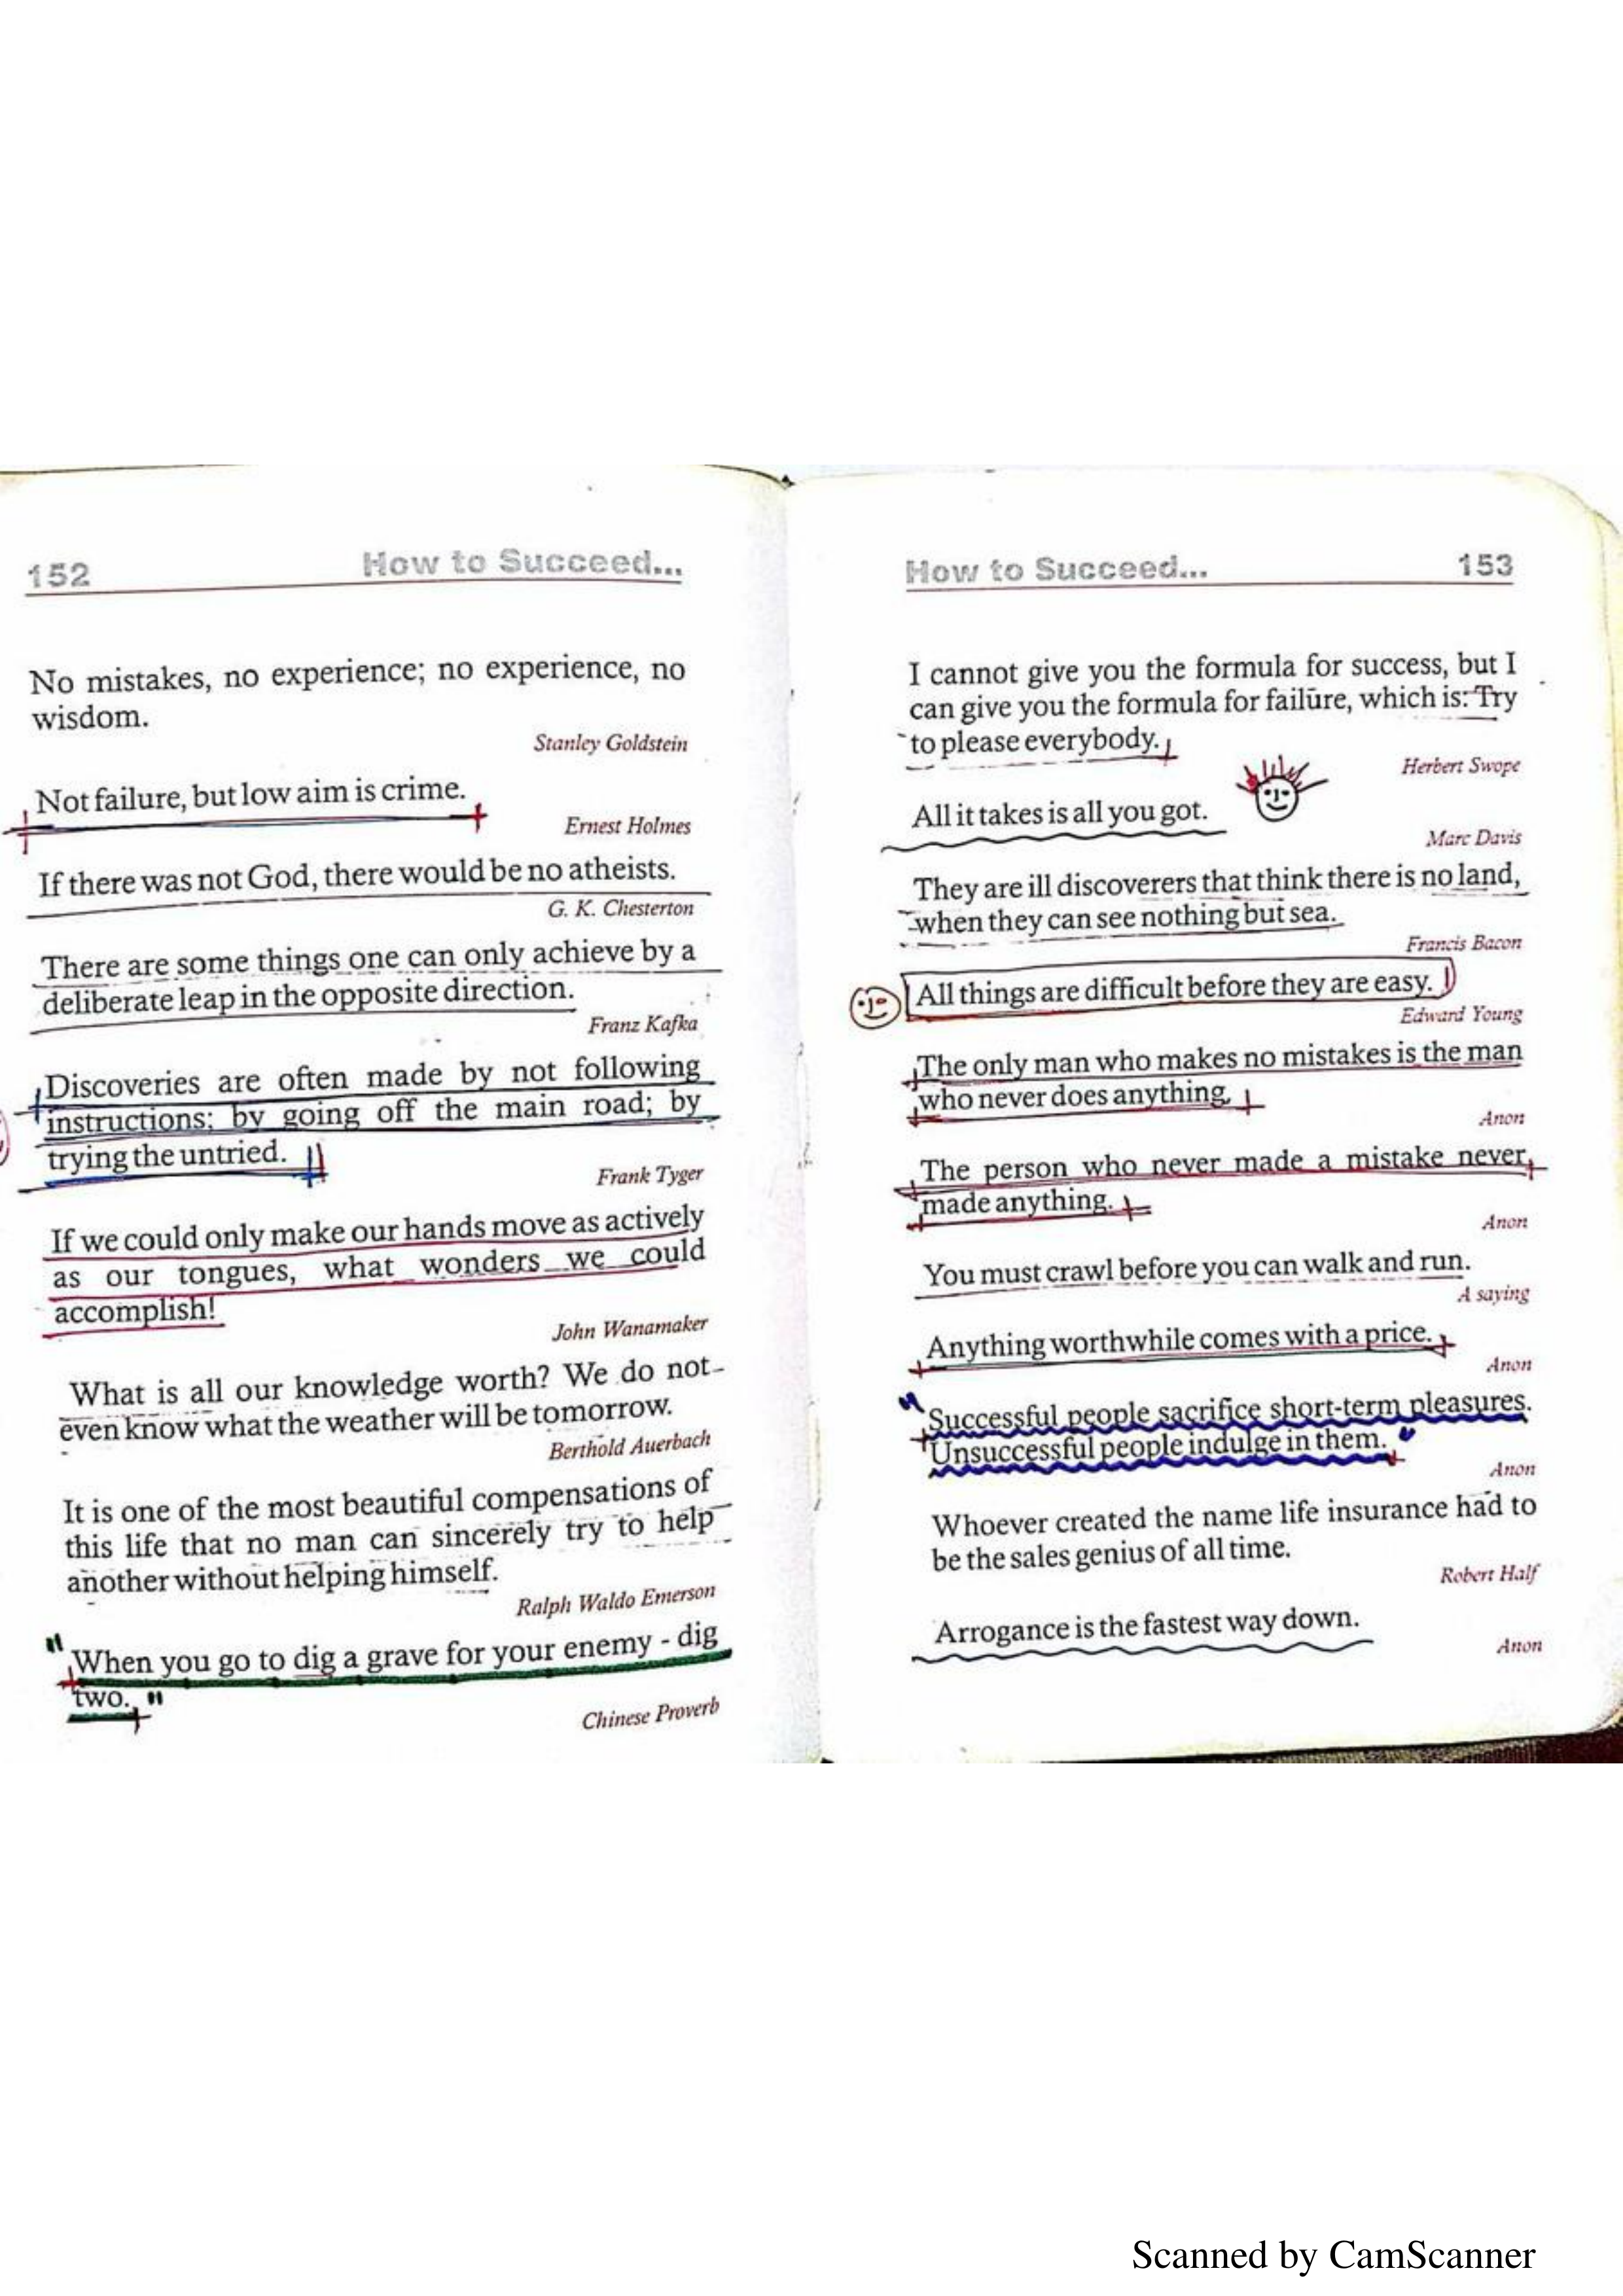 152
How to Succeed...
No mistakes, no experience; no experience, no
wisdom.
Stanley Goldstein
Not failure, but low aim is crime.
Ernest Holmes
If there was not God, there would be no atheists.
G. K. Chesterton
There are some things one can only achieve by a
deliberate leap in the opposite direction.
Franz Kafka
Discoveries are often made by not following
instructions; by going off the main road; by
trying the untried.
Frank Tyger
If we could only make our hands move as actively
as our tongues, what wonders we could
accomplish!
John Wanamaker
What is all our knowledge worth? We do not
even know what the weather will be tomorrow.
Berthold Auerbach
It is one of the most beautiful compensations of
this life that no man can sincerely try to help
another without helping himself.
Ralph Waldo Emerson
"When you go to dig a grave for your enemy - dig
two."
Chinese Proverb
How to Succeed...
153
I cannot give you the formula for success, but I
can give you the formula for failure, which is: Try
to please everybody.
Herbert Swope
All it takes is all you got.
Marc Davis
They are ill discoverers that think there is no land,
when they can see nothing but sea.
Francis Bacon
All things are difficult before they are easy.
Edward Young
The only man who makes no mistakes is the man
who never does anything.
Anon
The person who never made a mistake never
made anything.
Anon
You must crawl before you can walk and run.
A saying
Anything worthwhile comes with a price.
Anon
"Successful people sacrifice short-term pleasures.
Unsuccessful people indulge in them."
Anon
Whoever created the name life insurance had to
be the sales genius of all time.
Robert Half
Arrogance is the fastest way down.
Anon
Scanned by CamScanner